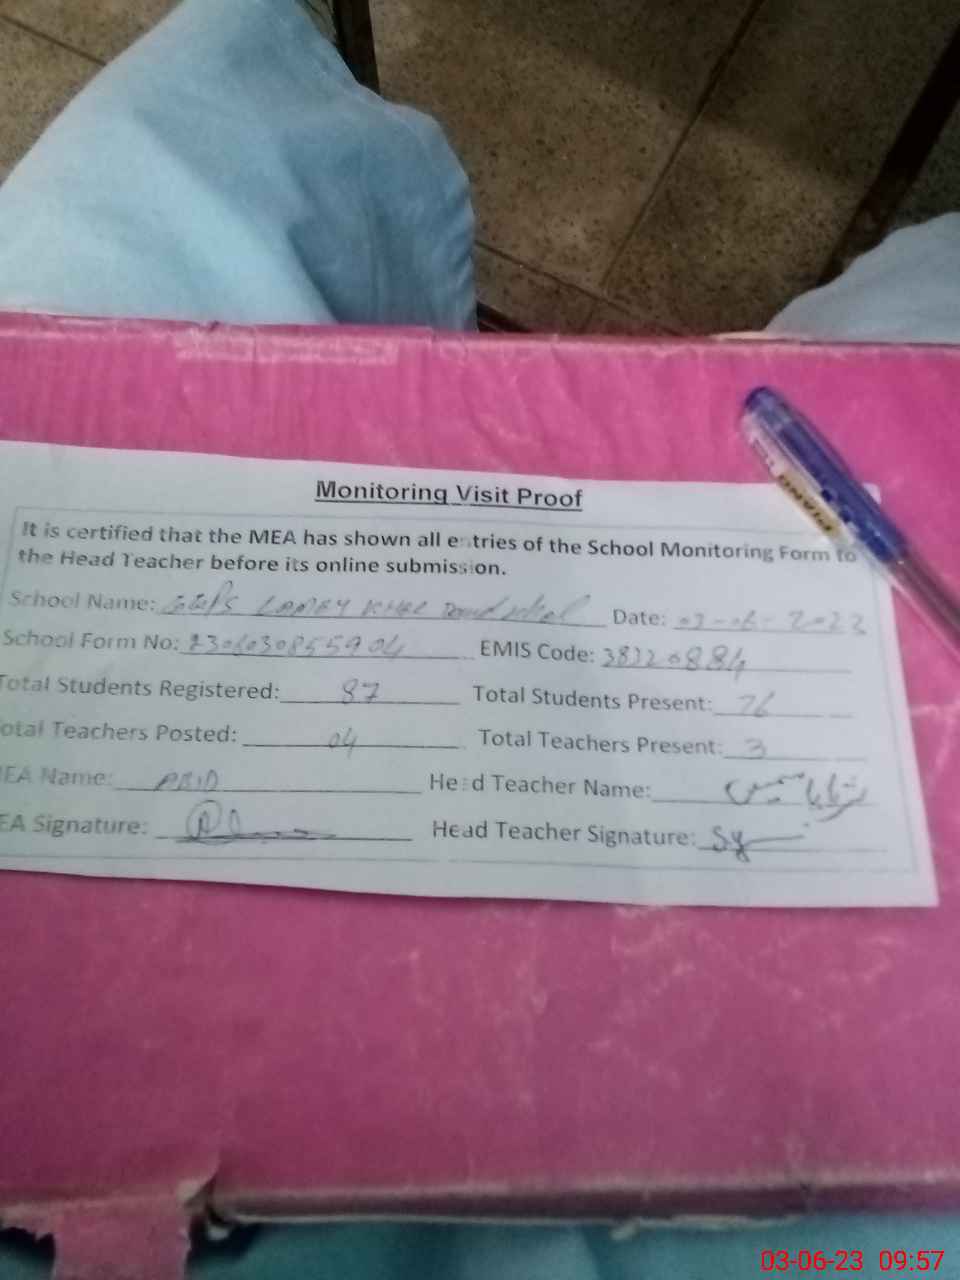 Monitoring Visit Proof
It is certified that the MEA has shown all entries of the School Monitoring Form to
the Head Teacher before its online submission.
School Name: GGPS Date: 03-06-2023
School Form No: 2306030855904 EMIS Code: 38320884
Total Students Registered: 87 Total Students Present: 76
otal Teachers Posted: 04 Total Teachers Present: 3
EA Name: Head Teacher Name:
EA Signature: Head Teacher Signature:
PIANO
03-06-23 09:57